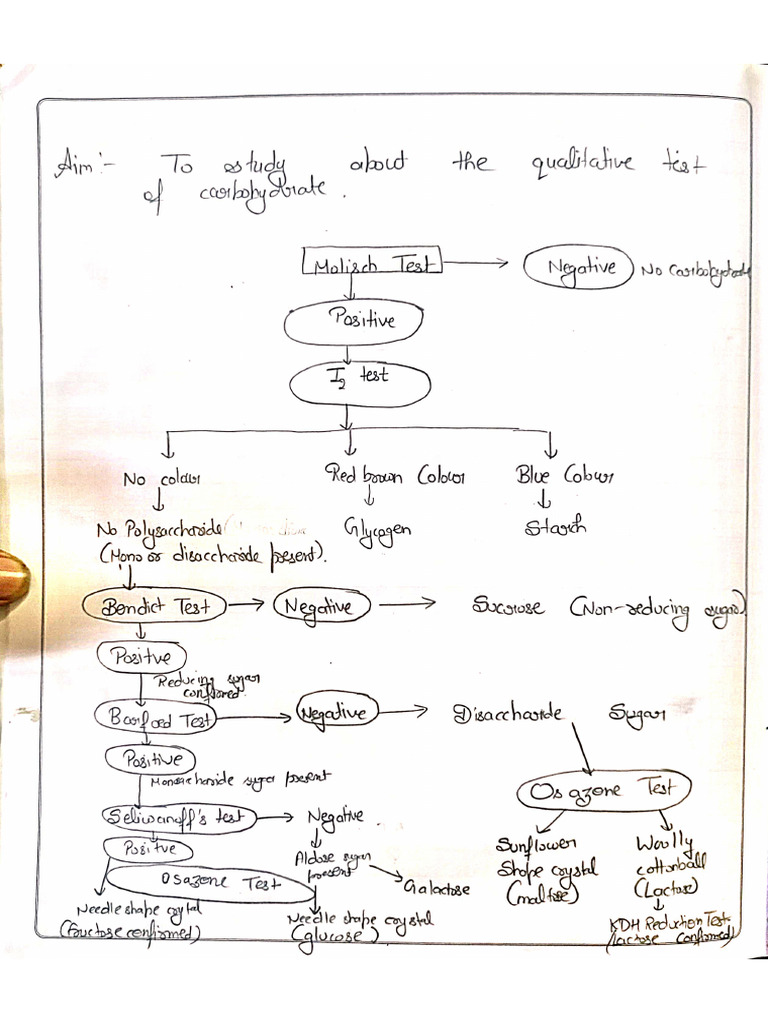 Aim:- To study about the qualitative test
of carbohydrate.
Molisch Test
Negative No Carbohydrate
Positive
I2 test
No colour Red brown Colour Blue Colour
No Polysaccharide Glycogen Starch
(Mono or disaccharide present).
Bendict Test Negative Sucrose (Non-reducing sugar)
Positve
Reducing sugar
confirmed
Barfoed Test Negative Disaccharide Sugar
Positive
Monosaccharide sugar present
Osazone Test
Seliwanoff's test Negative
Positve
Aldose sugar
present
Galactose
Sunflower
Shape crystal
(maltose)
Woolly
cottonball
(Lactose)
Osazone Test
Needle shape crystal
(fructose confirmed)
Needle shape crystal
(glucose)
KDH Reduction Test
(lactose confirmed)